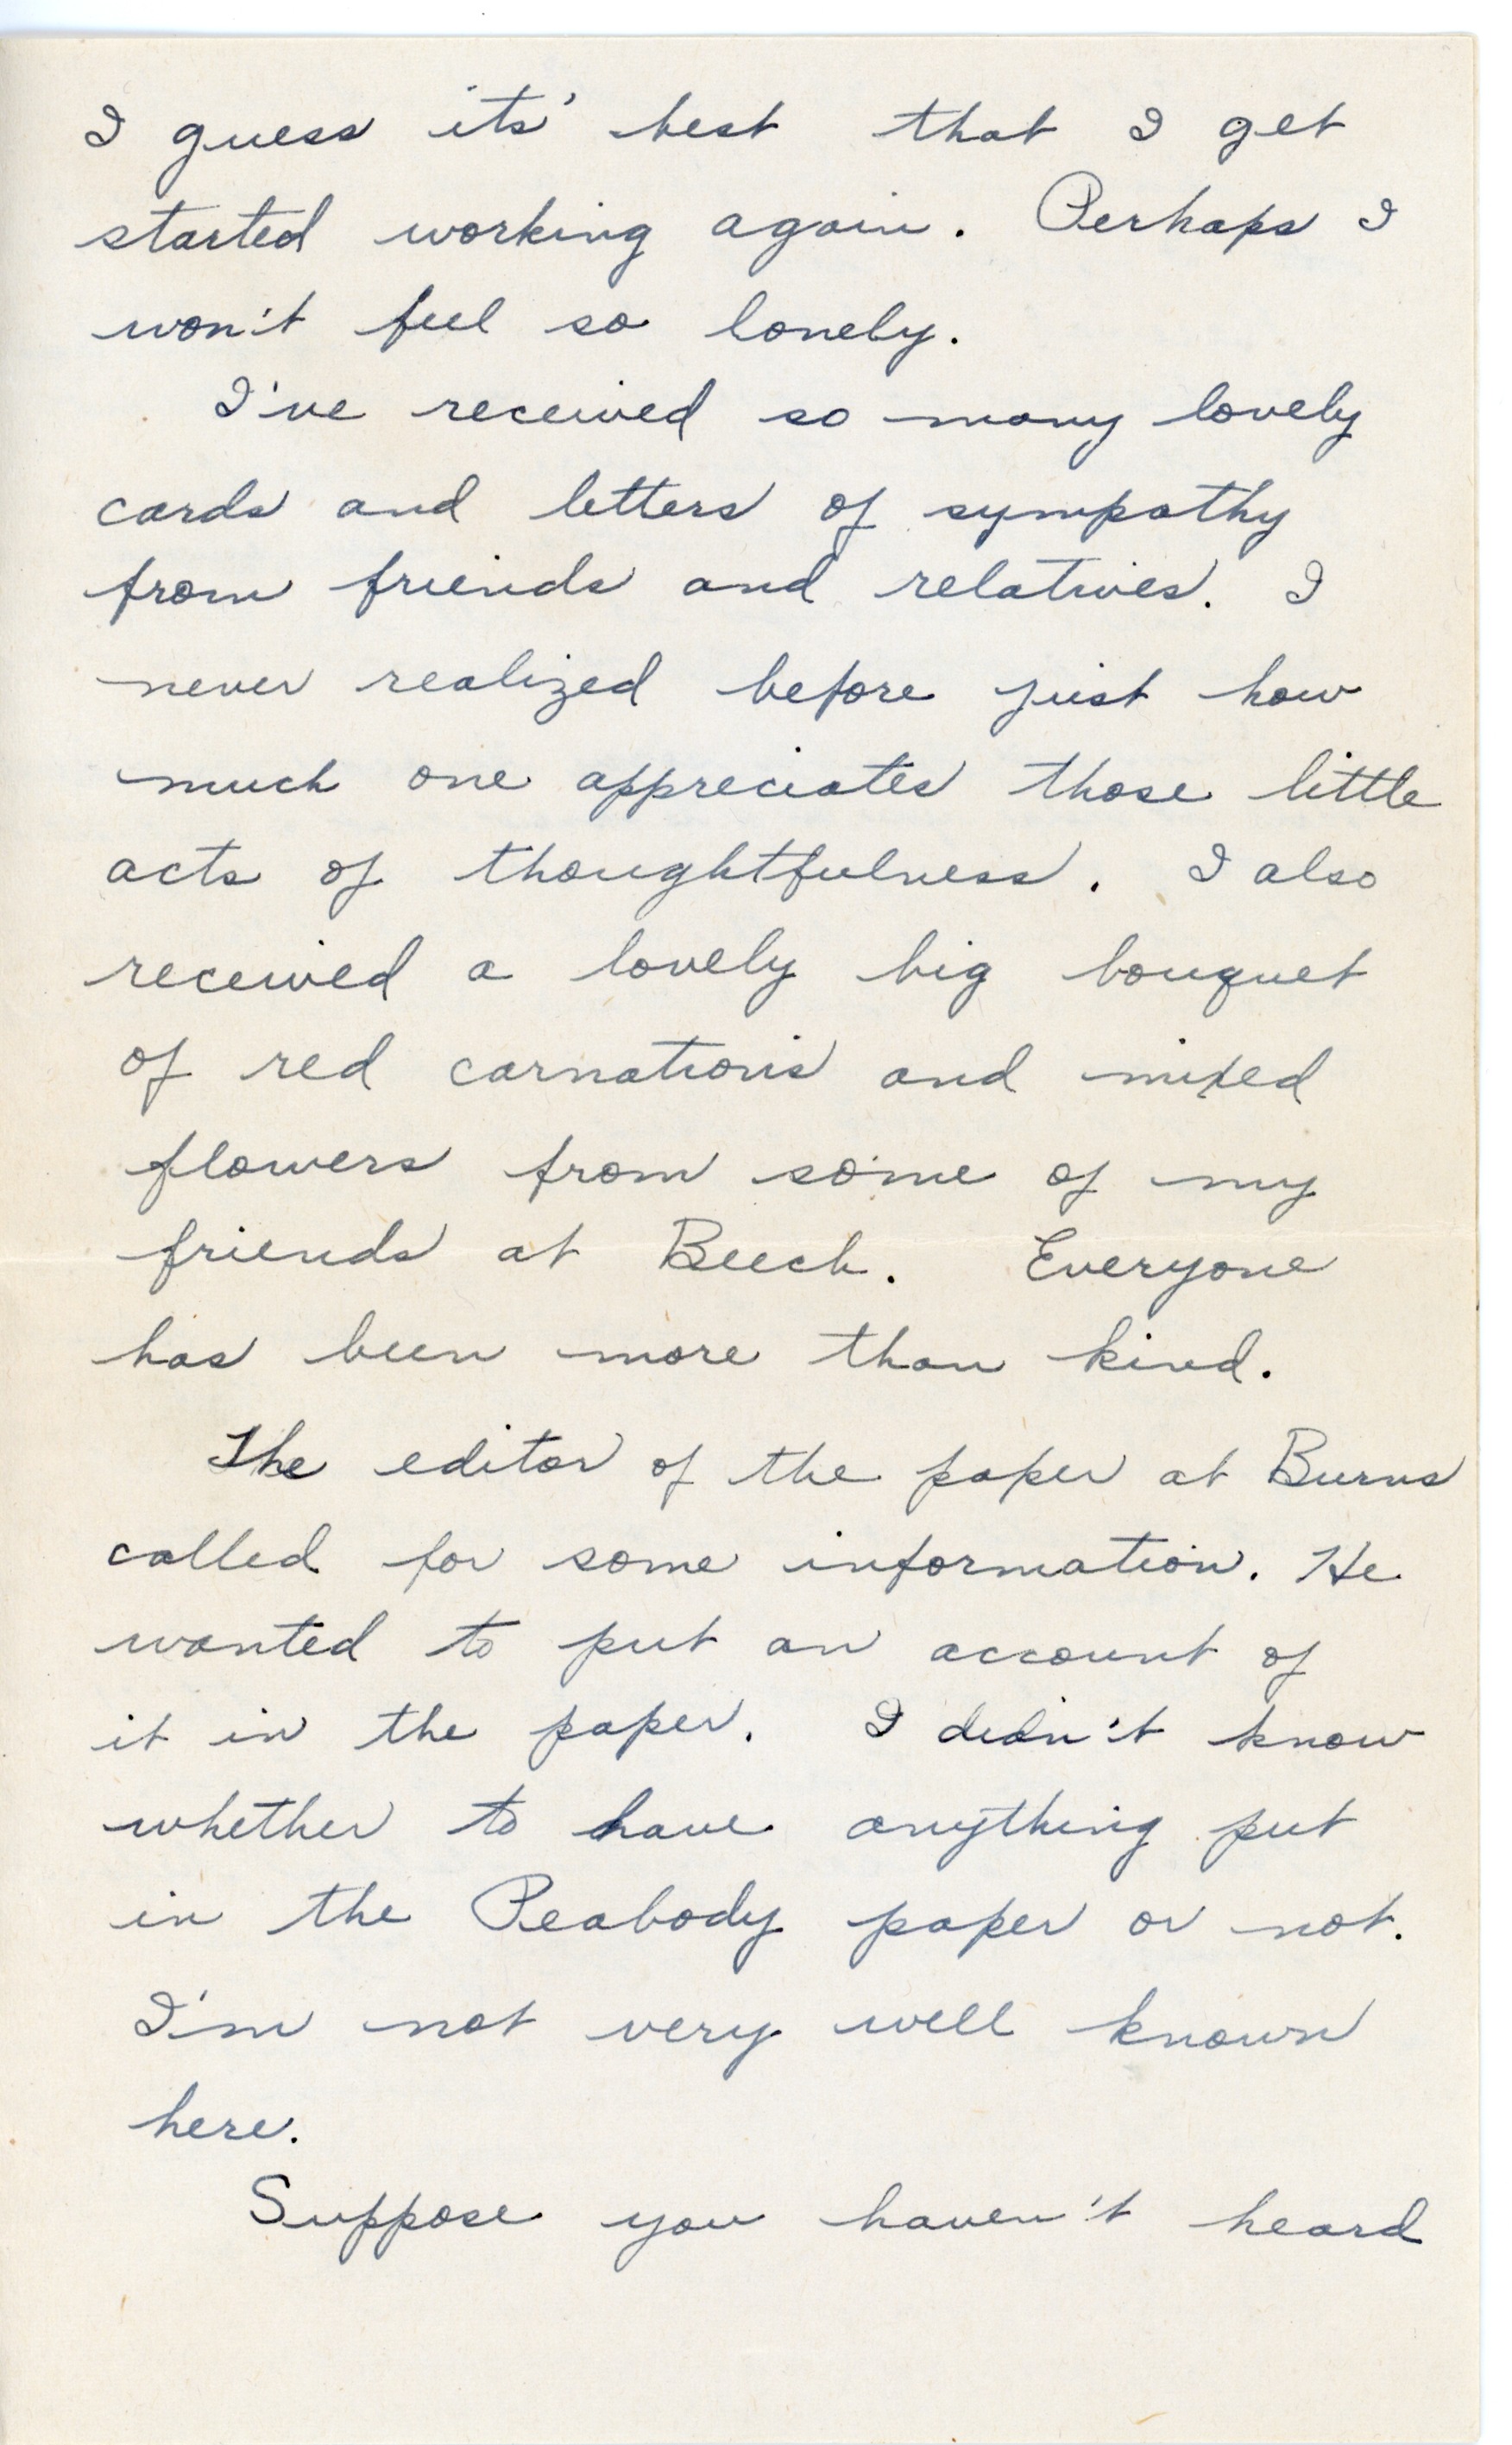 I guess its' best that I get
started working again. Perhaps I
won't feel so lonely.
I've received so many lovely
cards and letters of sympathy
from friends and relatives. I
never realized before just how
much one appreciates those little
acts of thoughtfulness. I also
received a lovely big bouquet
of red carnations and mixed
flowers from some of my
friends at Beech. Everyone
has been more than kind.
The editor of the paper at Burns
called for some information. He
wanted to put an account of
it in the paper. I didn't know
whether to have anything put
in the Peabody paper or not.
I'm not very well known
here.
Suppose you haven't heard